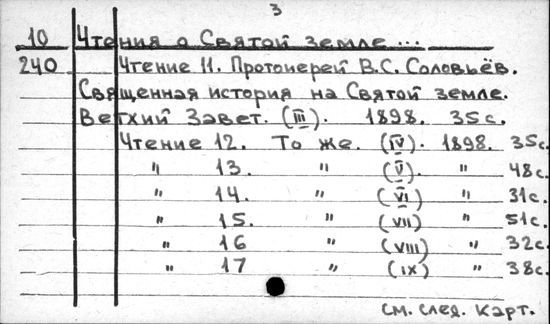 3
10 Чтения о Святой земле ...
240 Чтение 11. Протоиерей В.С. Соловьёв.
Священная история на Святой земле.
Ветхий Завет. (III). 1898. 35с.
Чтение 12. То же. (IV). 1898. 35с.
" 13. " (V). " 48с.
" 14. " (VI) " 31с.
" 15. " (VII) " 51с.
" 16 " (VIII) " 32с.
" 17 " (IX) " 38с.
см. след. карт.